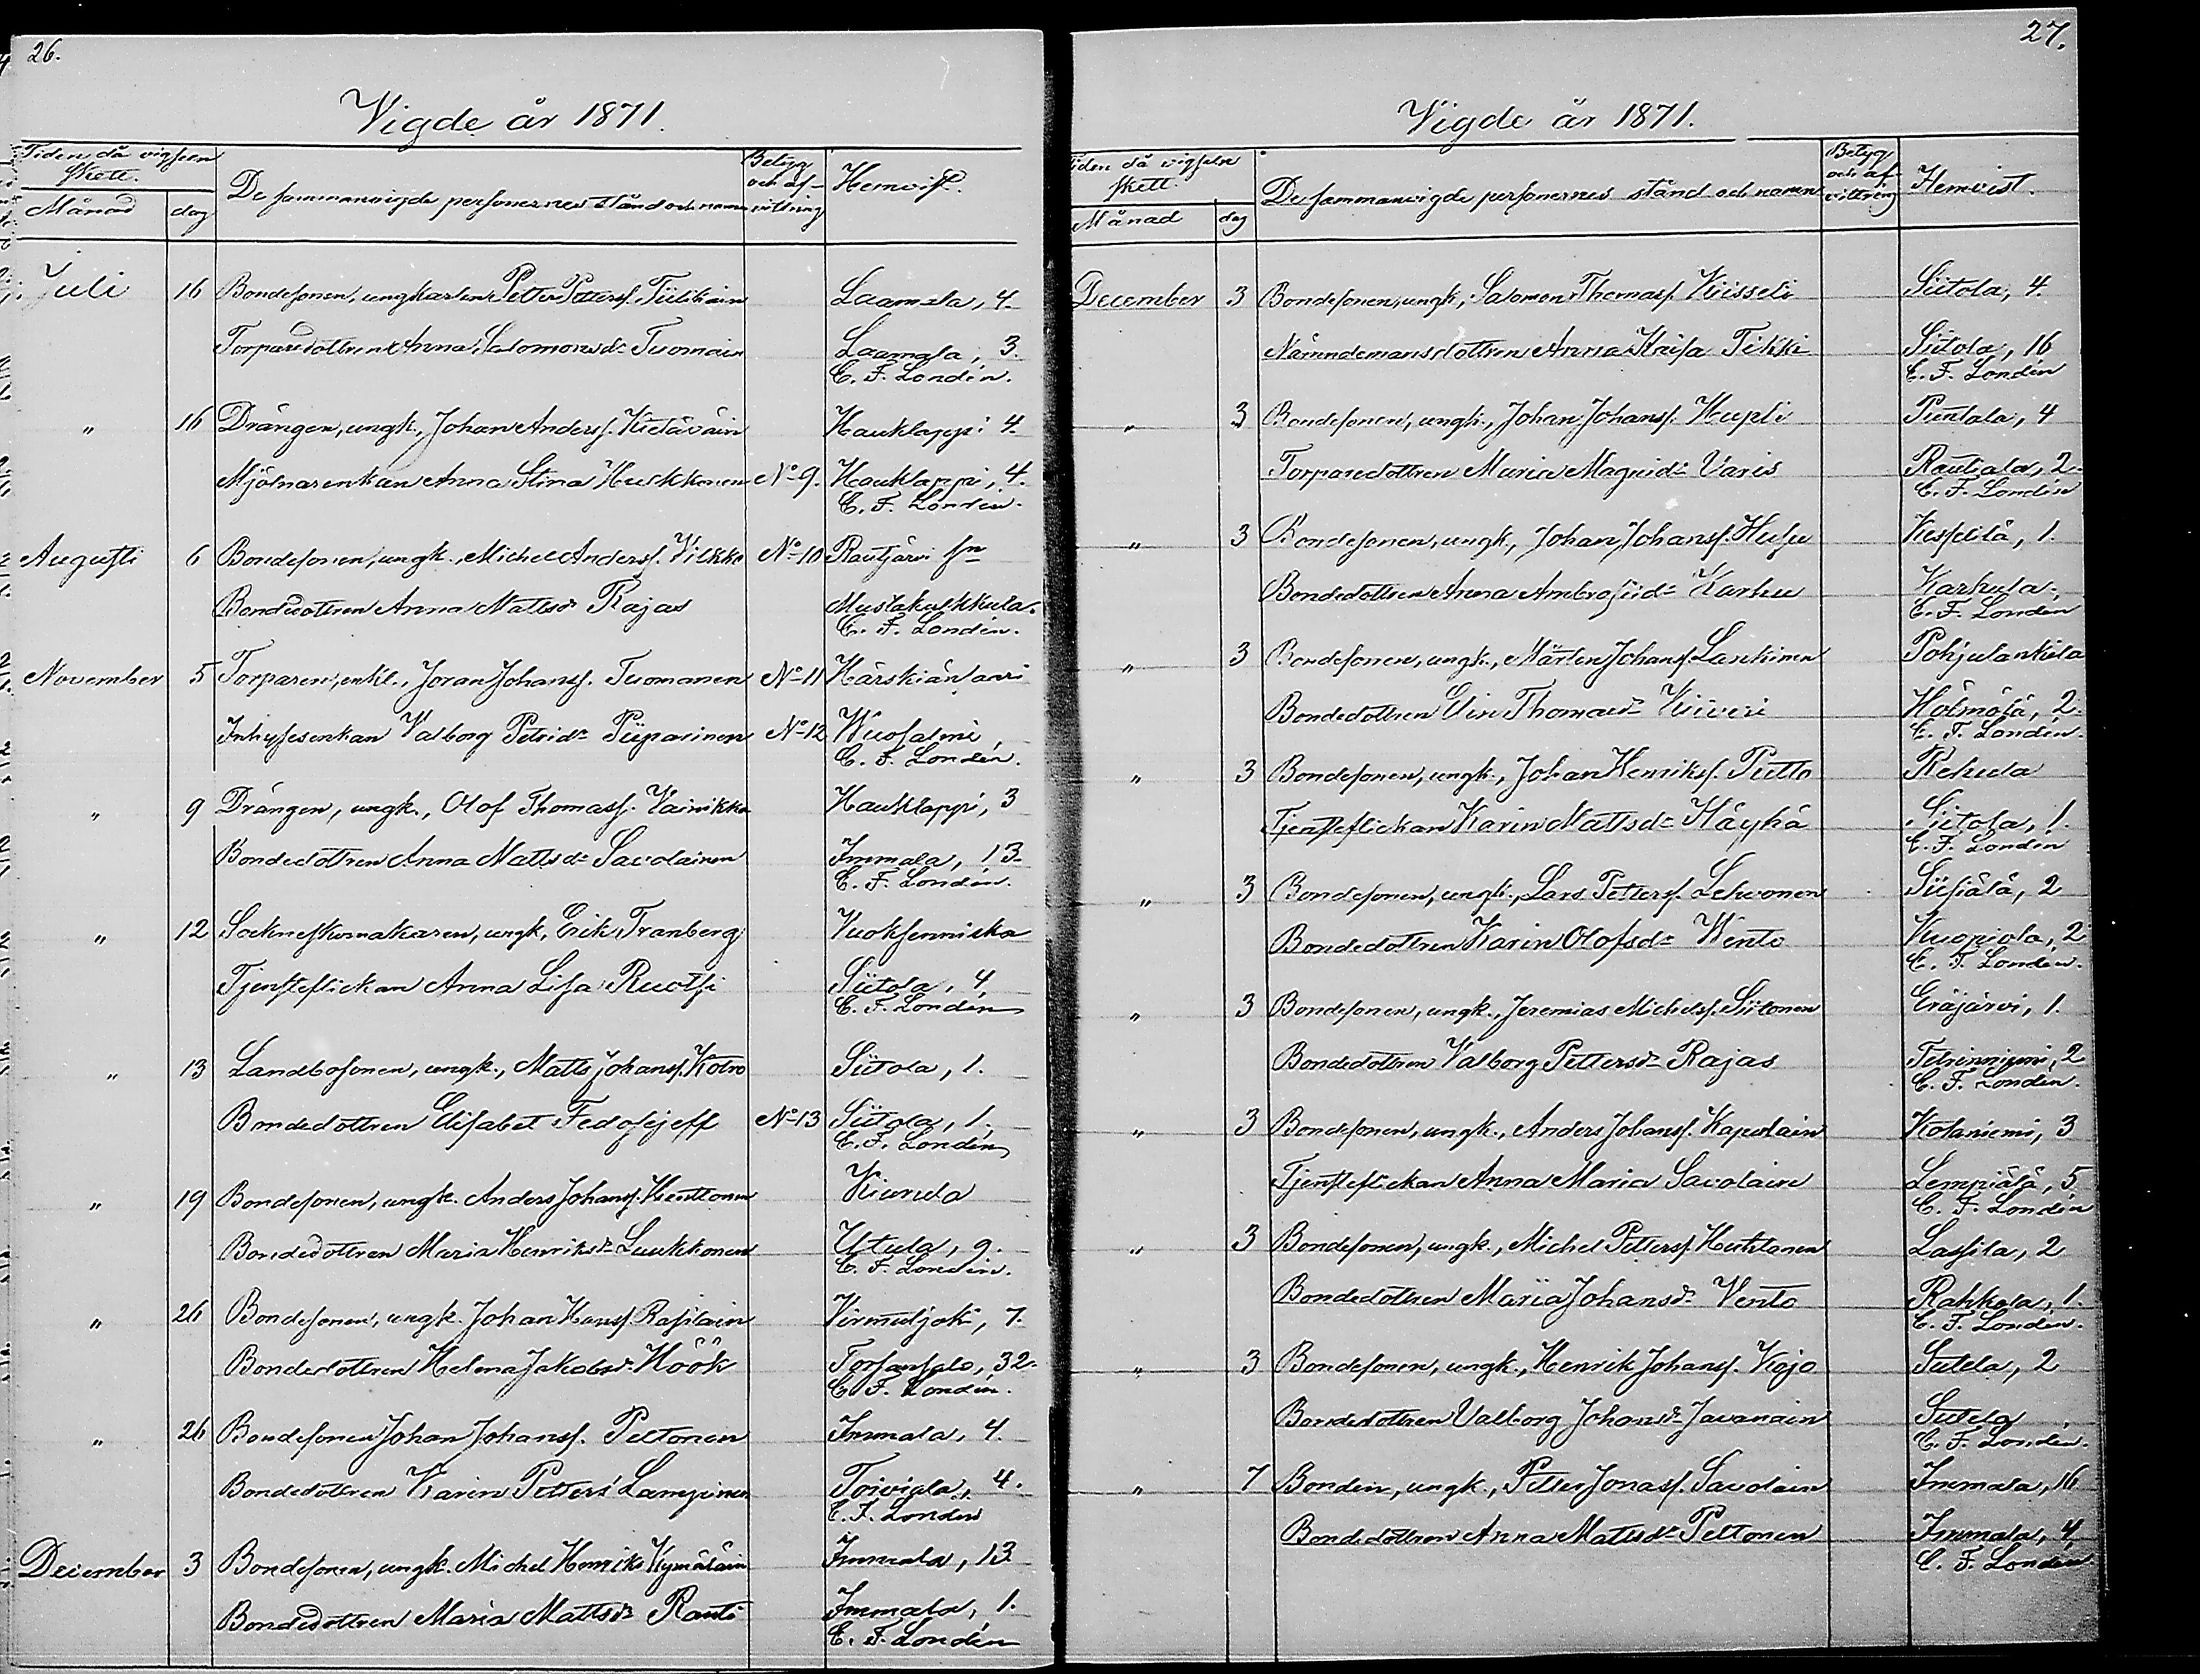 26.
Vigde år 1871.
Tiden då vigseln
skett.
Månad
dag
De sammanvigde personernes stånd och namn
Betyg
och af-
vittring
Hemvist.
Juli 16 Bondesonen, ungkarlen Petter Petterss. Tiilikain Laamala, 4.
Torparedottren Anna Salomonsdr Tuomain Laamala, 3.
C. F. Londén.
" 16 Drängen, ungk., Johan Anderss. Kietäväin Hauklappi 4.
Mjölnarenkan Anna Stina Hulkkonen No 9. Hauklappi, 4.
C. F. Londén.
Augusti 6 Bondesonen, ungk., Michel Anderss. Vilkko No 10 Rautjärvi sn
Bondedottren Anna Mattsdr Rajas Mustakulkkula.
C. F. Londén.
November 5 Torparen, enkl., Joran Johanss. Tuomanen No 11 Härskiänsaari
Inhysesenkan Valborg Petridr Piiparinen No 12 Wuosalmi,
C. F. Londén.
" 9 Drängen, ungk., Olof Thomass. Vainikka Hauklappi, 3
Bondedottren Anna Mattsdr Savolainen Immala, 13.
C. F. Londén.
" 12 Sockneskomakaren, ungk, Erik Tranberg Vuoksenniska
Tjensteflickan Anna Lisa Ruotsi Siitola, 4,
C. F. Londén
" 13 Landbosonen, ungk., Matts Johanss. Kotro Siitola, 1.
Bondedottren Elisabet Fedosejeff No 13 Siitola, 1.
C. F. Londén
" 19 Bondesonen, ungk. Anders Johanss. Henttonen Kiurula
Bondedottren Maria Henriksdr Luukkonen Utula, 9.
C. F. Londén.
" 26 Bondesonen, ungk. Johan Hanss. Rasilain Virmutjoki, 7.
Bondedottren Helena Jakobsdr Höök Torsansalo, 32.
C. F. Londén.
" 26 Bondesonen Johan Johanss. Peltonen Immala, 4.
Bondedottren Karin Petters Lampinen Toiviala, 4.
C. F. Londén
December 3 Bondesonen, ungk. Michel Henriks Kymäläin Immala, 13
Bondedottren Maria Mattsdr Ranti Immala, 1.
C. F. Londén
27.
Vigde år 1871.
Tiden då vigseln
skett.
Månad
dag
De sammanvigde personernes stånd och namn
Betyg
och af-
vittring
Hemvist.
December 3 Bondesonen, ungk., Salomon Thomass. Kiisseli Siitola, 4.
Nämndemansdottren Anna Kaisa Tikki Siitola, 16
C. F. Londén
" 3 Bondesonen, ungk., Johan Johanss. Hupli Puntala, 4
Torparedottren Maria Magnidr Varis Rautiala, 2.
C. F. Londén
" 3 Bondesonen, ungk., Johan Johanss. Husu Kesselilä, 1.
Bondedottren Anna Ambrosiidr Karhu Karhula.,
C. F. Londén
" 3 Bondesonen, ungk., Mårten Johanss. Lankinen Pohjalankila
Bondedottren Elin Thomasdr Kiiveri Hälmäjä, 2.
C. F. Londén.
" 3 Bondesonen, ungk., Johan Henrikss. Putto Rehula
Tjensteflickan Karin Mattsdr Häyhä Siitola, 1.
C. F. Londén
" 3 Bondesonen, ungk., Lars Petterss. Lehvonen Siisiälä, 2
Bondedottren Karin Olofsdr Wento Kuopiola, 2
C. F. Londén.
" 3 Bondesonen, ungk., Jeremias Michelss. Siitonen Eräjärvi, 1.
Bondedottren Valborg Pettersdr Rajas Tetrinniemi, 2
C. F. Londén.
" 3 Bondesonen, ungk., Anders Johanss. Kapulain Kotaniemi, 3
Tjensteflickan Anna Maria Savolain Lempiälä, 5,
C. F. Londén
" 3 Bondesonen, ungk., Michel Petterss. Huhtanen Lassila, 2
Bondedottren Maria Johansdr Vento Rahkola, 1.
C. F. Londén.
" 3 Bondesonen, ungk., Henrik Johanss. Kojo Sutela, 2
Bondedottren Valborg Johansdr Javanain Sutela
C. F. Londén.
" 7 Bonden, ungk., Petter Jonass. Savolain Immala, 16
Bondedottren Anna Mattsdr Peltonen Immala, 4
C. F. Londén